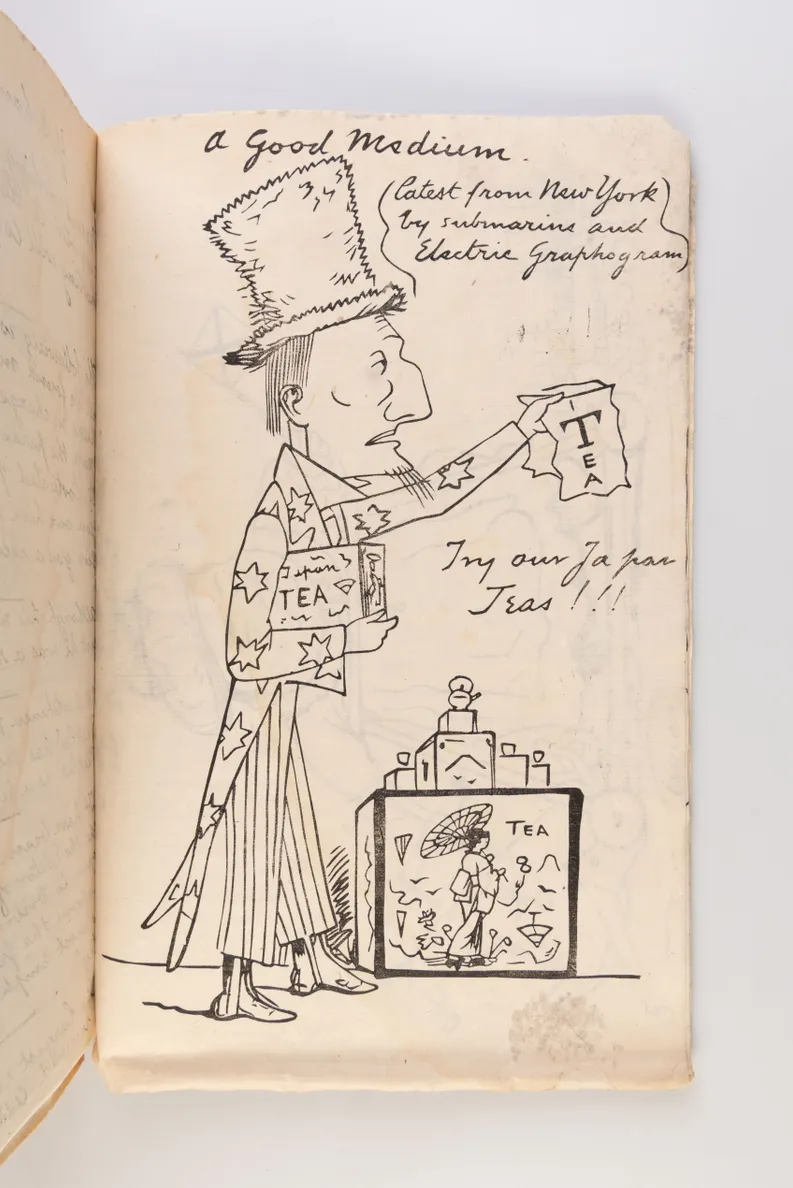 A Good Medium.
(latest from New York
by submarine and
Electric Graphogram)
TEA
Japan
TEA
Try our Japan
Teas!!!
TEA